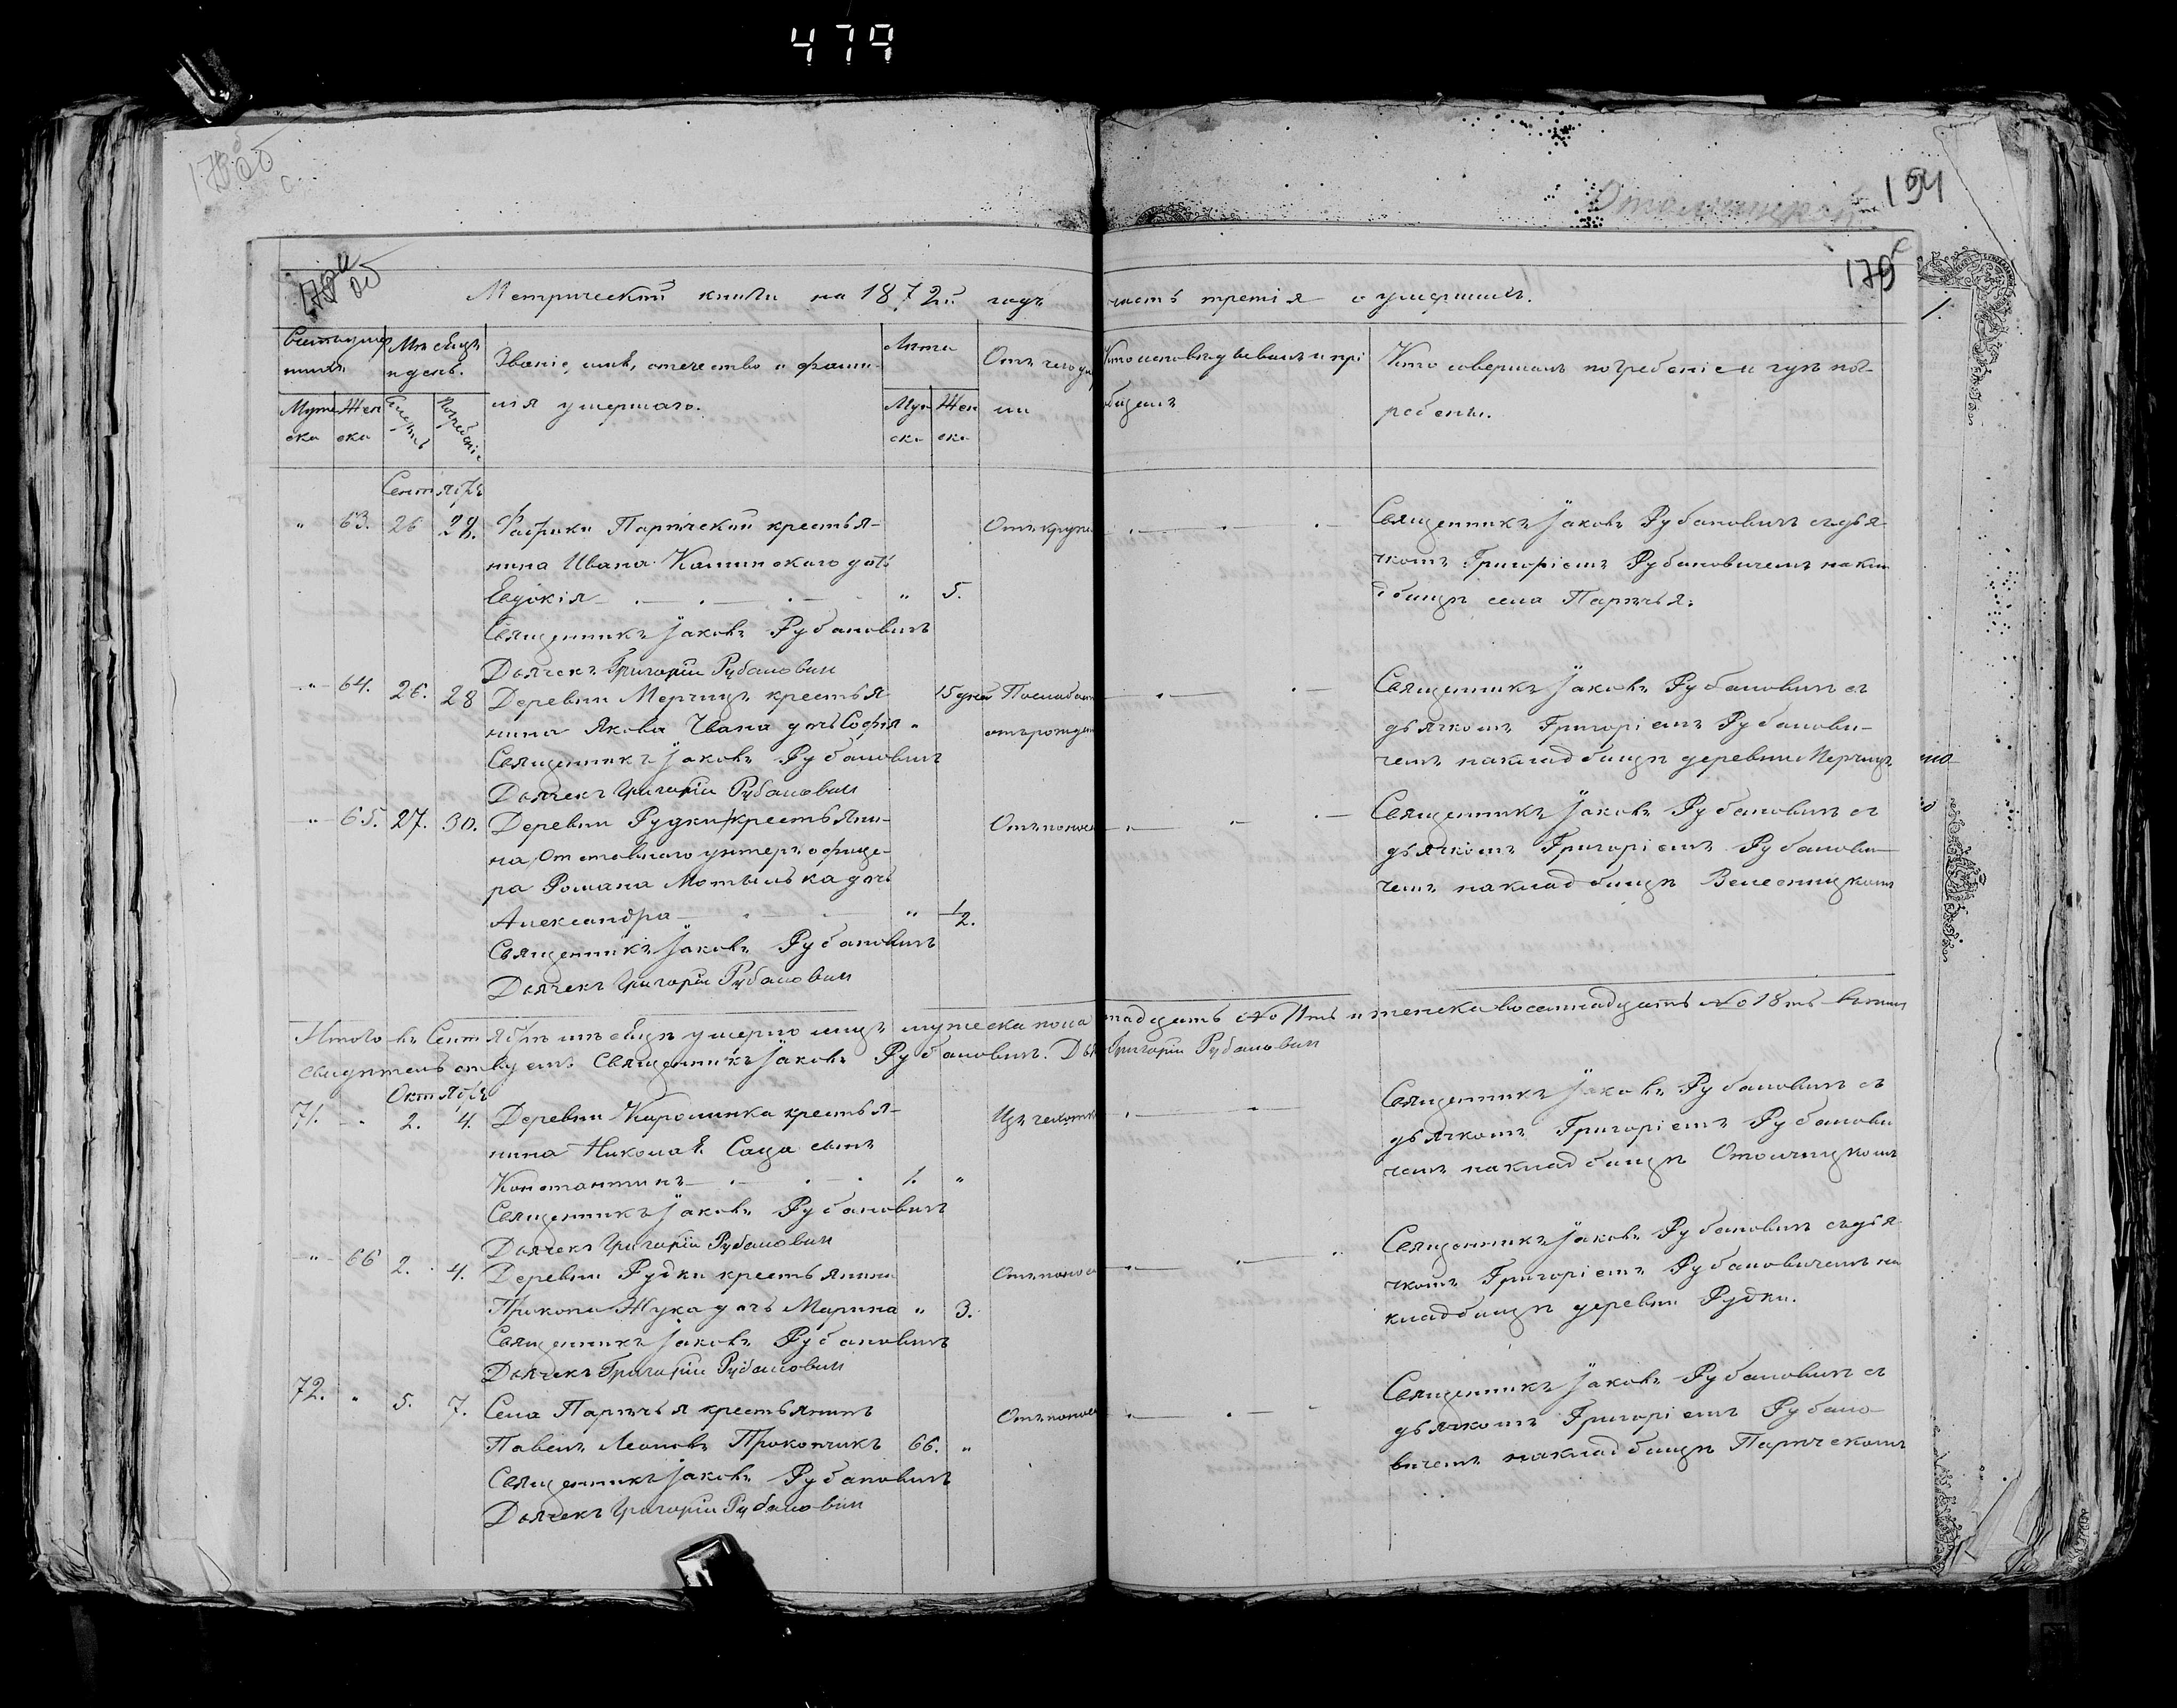 479
194
179
Метрической книги на 1872й годъ часть третія о умершихъ.
Званіе, имя, отечество и фами-
лія умершаго.
Месяцъ
и день.
Лета
Кто совершалъ погребеніе и гдѣ пог-
ребены.
Муже Жен
ска ска
Муж Жен
ска ска
Сентябрь
" 63. 26 28. Фабрики Парѣчской крестья-
нина Ивана Каминскаго дочь
Евдокія " 5.
Священникъ Іаковъ Рубановичъ
Дьячекъ Григорій Рубановичъ
Священникъ Іаковъ Рубановичъ съ дья
чкомъ Григоріемъ Рубановичемъ на кла
дбищѣ села Парѣчья.
" 64. 26. 28 Деревни Мерчицъ крестья
нина Якова Чвана дочь Софія " 15 дней
Священникъ Іаковъ Рубановичъ
Дьячекъ Григорій Рубановичъ
Священникъ Іаковъ Рубановичъ съ
дьячкомъ Григоріемъ Рубанови-
чемъ на кладбищѣ деревни Мерчицъ
" 65. 27. 30. Деревни Рудки крестьяни-
на, Отставнаго унтеръ офице-
ра Романа Мотылька дочь
Александра " 1/2.
Священникъ Іаковъ Рубановичъ
Дьячекъ Григорій Рубановичъ
От поноса
Священникъ Іаковъ Рубановичъ съ
дьячкомъ Григоріемъ Рубанови-
чемъ на кладбищѣ Велесницкомъ
Итого въ Сентябрѣ месяцѣ умерло лицъ мужеска пола надцать № 11ть и женска восемнадцать № 18ть
свидетельствуемъ: Священникъ Іаковъ Рубановичъ. Григорій Рубановичъ
Октябрь
71. " 2. 4. Деревни Каролинка крестья-
нина Николая Саца сынъ
Константинъ 1. "
Священникъ Іаковъ Рубановичъ
Дьячекъ Григорій Рубановичъ
Священникъ Іаковъ Рубановичъ съ
дьячкомъ Григоріемъ Рубанови
чемъ на кладбищѣ Столицкомъ
" 66 2. 4. Деревни Рудки крестьянина
Прокопа Жука дочь Марина " 3.
Священникъ Іаковъ Рубановичъ
Дьячекъ Григорій Рубановичъ
Священникъ Іаковъ Рубановичъ съ дья
чкомъ Григоріемъ Рубановичемъ на
кладбищѣ деревни Рудки.
72. " 5. 7. Села Парѣчья крестьянинъ
Павелъ Леоновъ Прокопчикъ 66. "
Священникъ Іаковъ Рубановичъ
Дьячекъ Григорій Рубановичъ
Священникъ Іаковъ Рубановичъ съ
дьячкомъ Григоріемъ Рубано-
вичемъ на кладбищѣ Парѣчскомъ